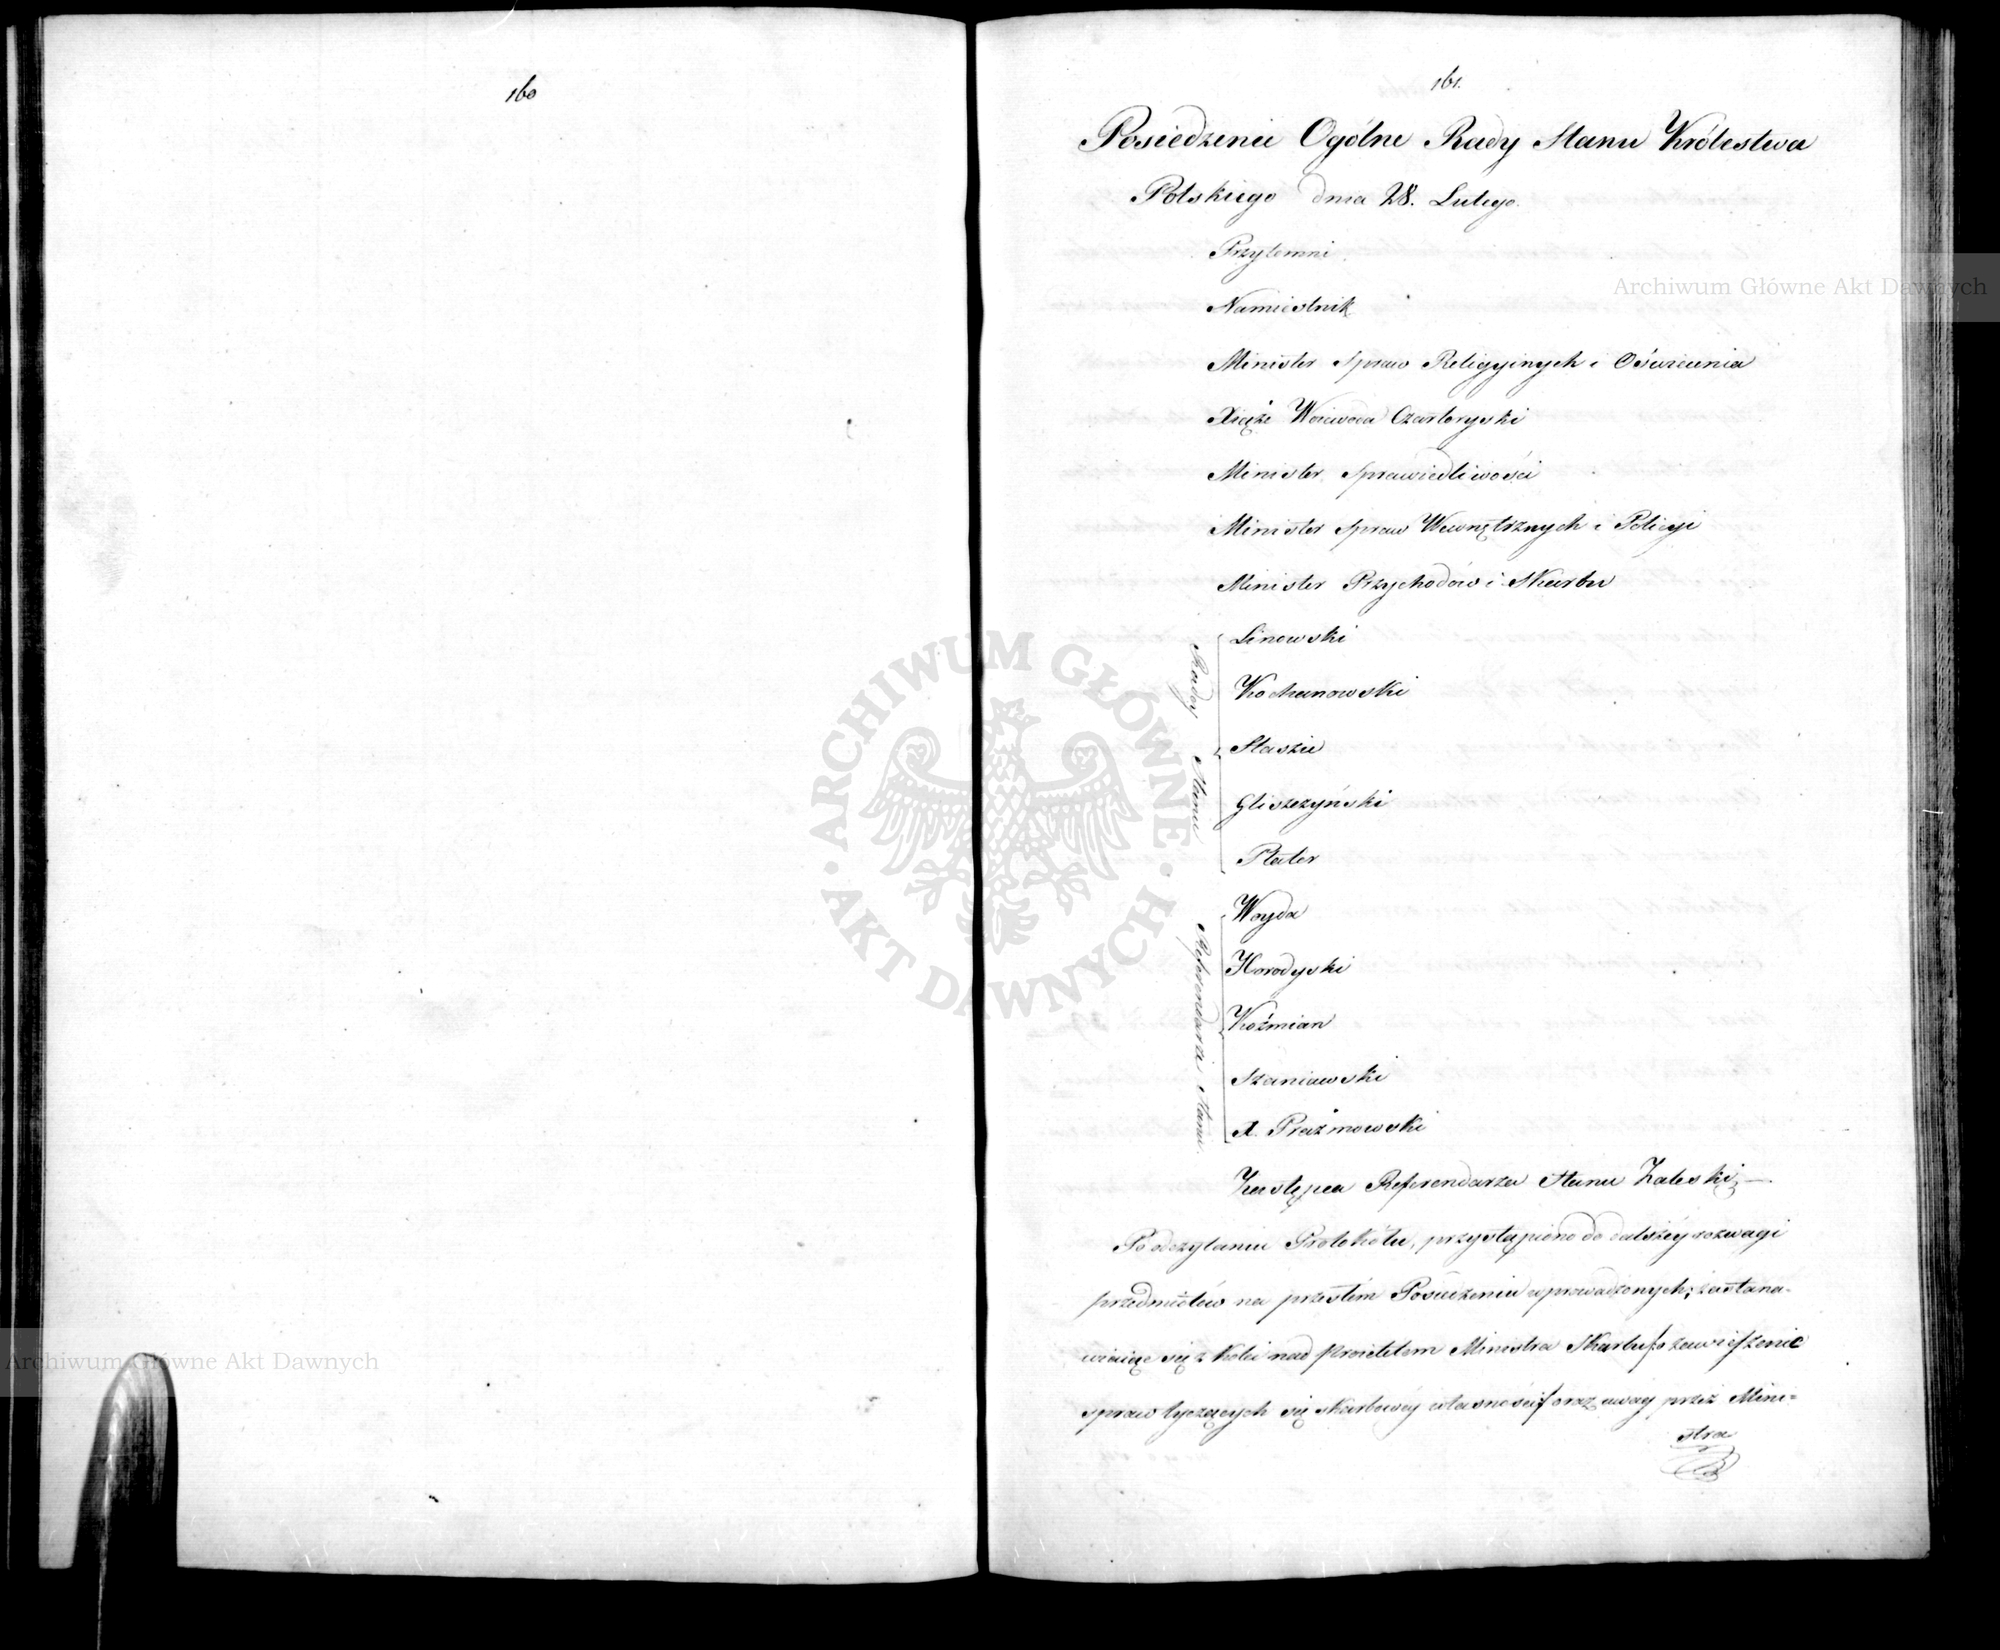 160
161.
Posiedzenie Ogólne Rady Stanu Królestwa
Polskiego dnia 28. Lutego.
Przytomni
Namiestnik
Minister Spraw Religyinych i Oświecenia
Xiąże Woiewoda Czartoryski
Minister Sprawiedliwości
Minister Spraw Wewnętrznych i Policyi
Minister Przychodów i Skarbu
Radcy Stanu
Linowski
Kochanowski
Staszic
Gliszczyński
Plater
Referendarze Stanu
Woyda
Horodyski
Koźmian
Szaniawski
X. Prażmowski
Zastępca Referendarza Stanu Zaleski;—
Po odczytaniu Protokółu, przystąpiono do dalszéy rozwagi
przedmiotów na przeszłém Posiedzeniu wprowadzonych; zastana-
wiaiąc się z kolei nad Proiektem Ministra Skarbu o zawieszenie
spraw tyczących się skarbowéy własności oraz uwag przez Mini=
stra
Archiwum Główne Akt Dawnych
Archiwum Główne Akt Dawnych
ARCHIWUM GŁÓWNE AKT DAWNYCH